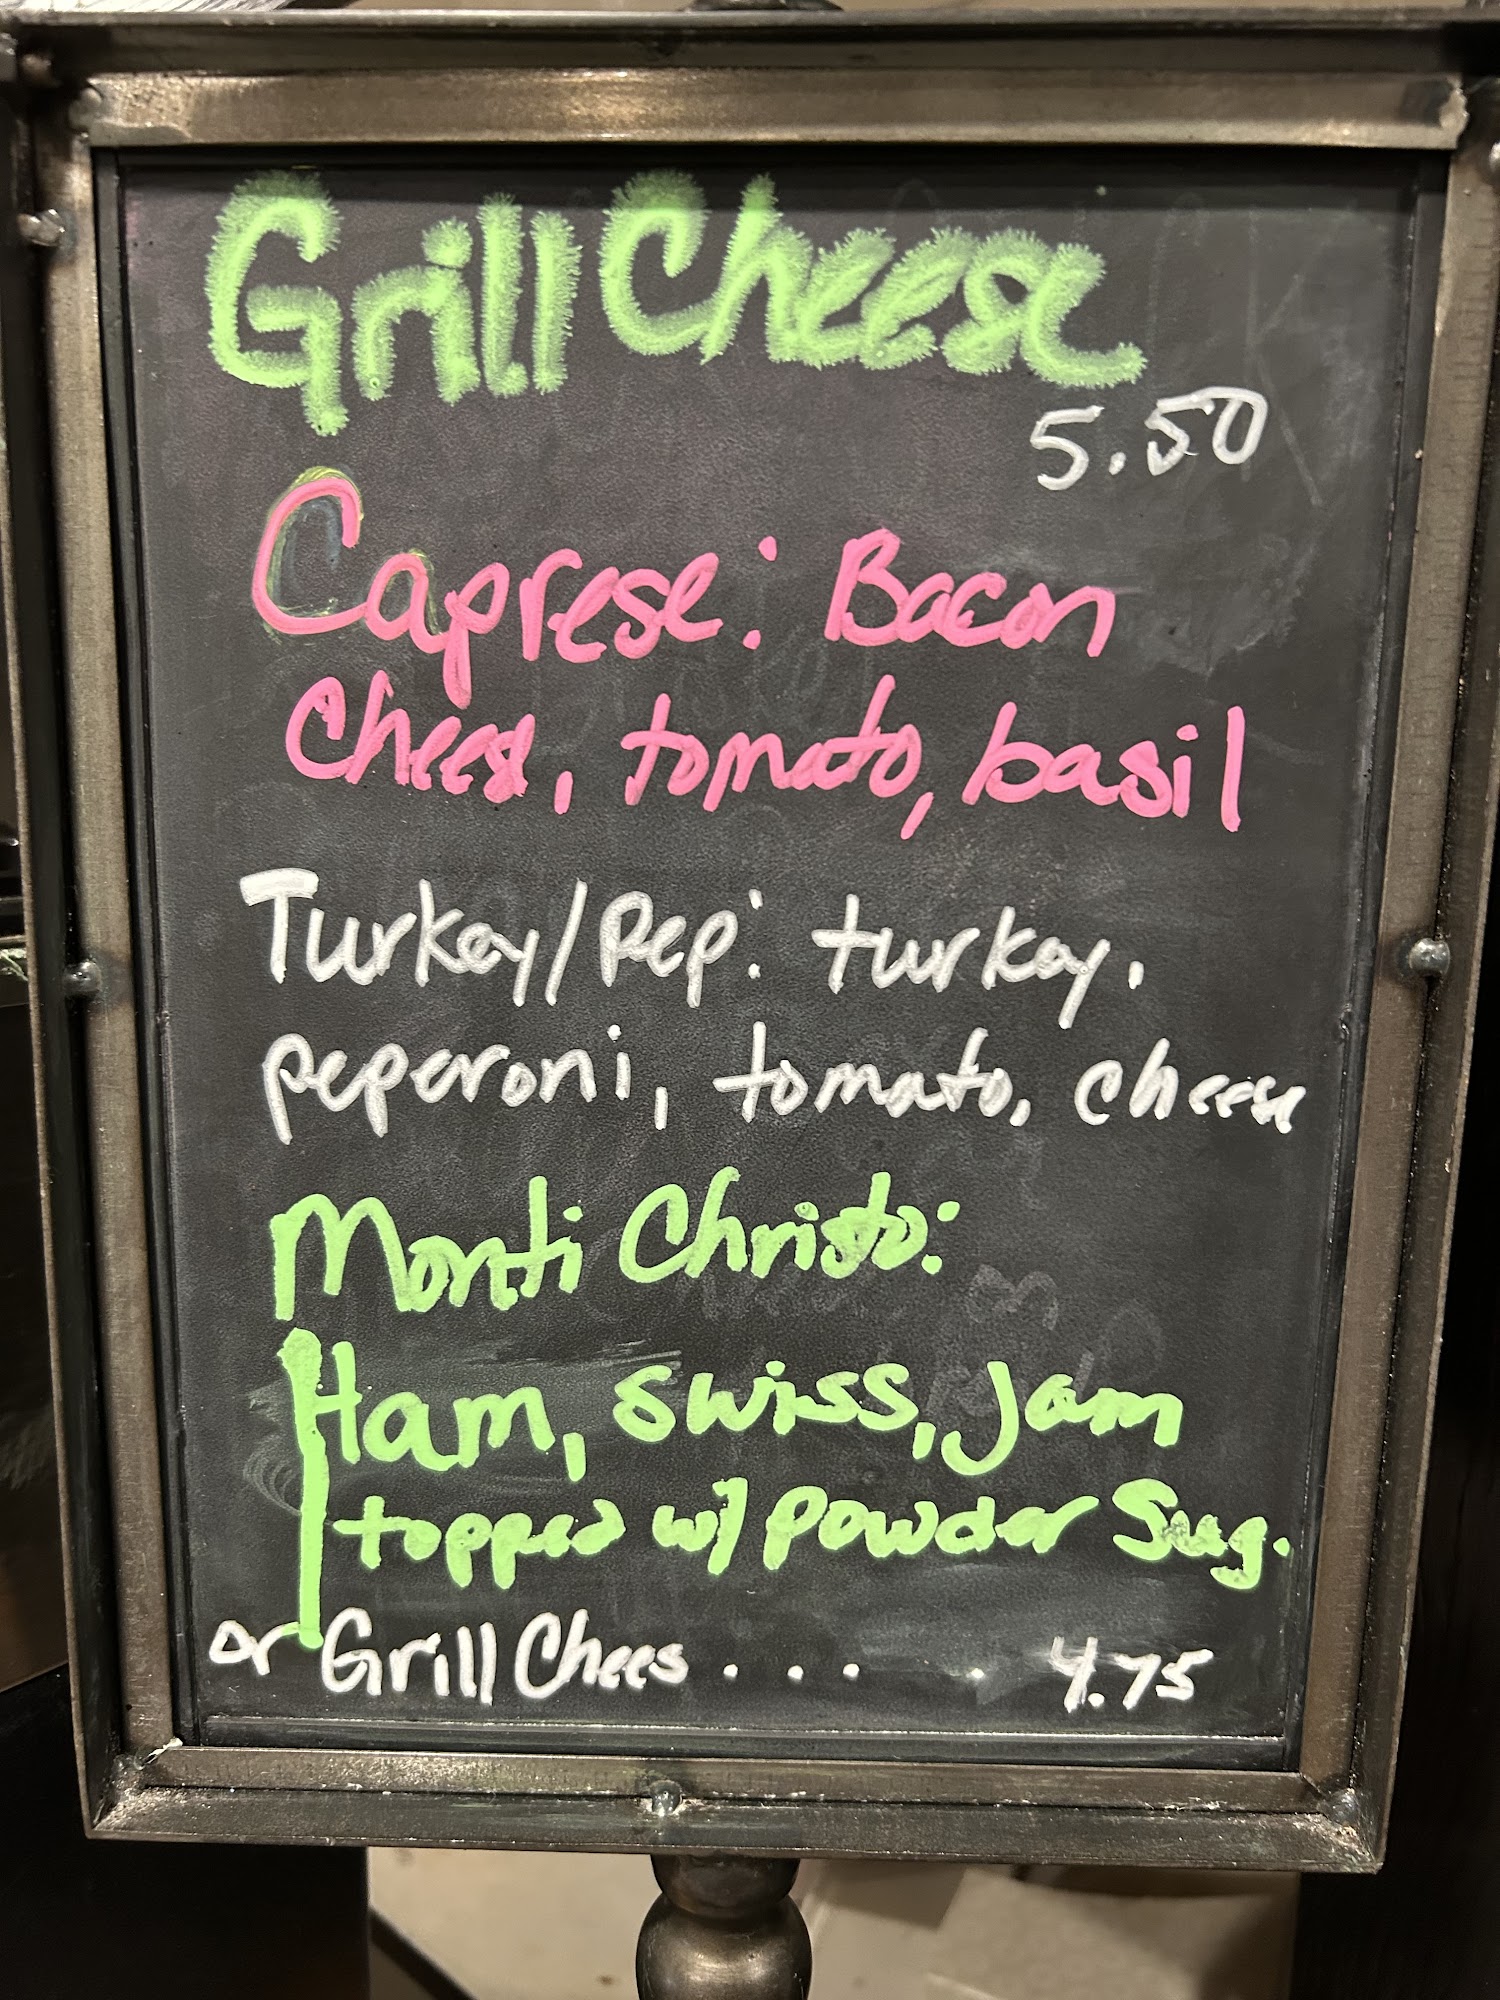 Grill Cheese
5.50
Caprese: Bacon
Cheese, tomato, basil
Turkey/Pep: turkey,
peperoni, tomato, cheese
Monti Christo:
Ham, swiss, Jam
topped w/ Powder Sug.
or Grill Chees . . . . 4.75